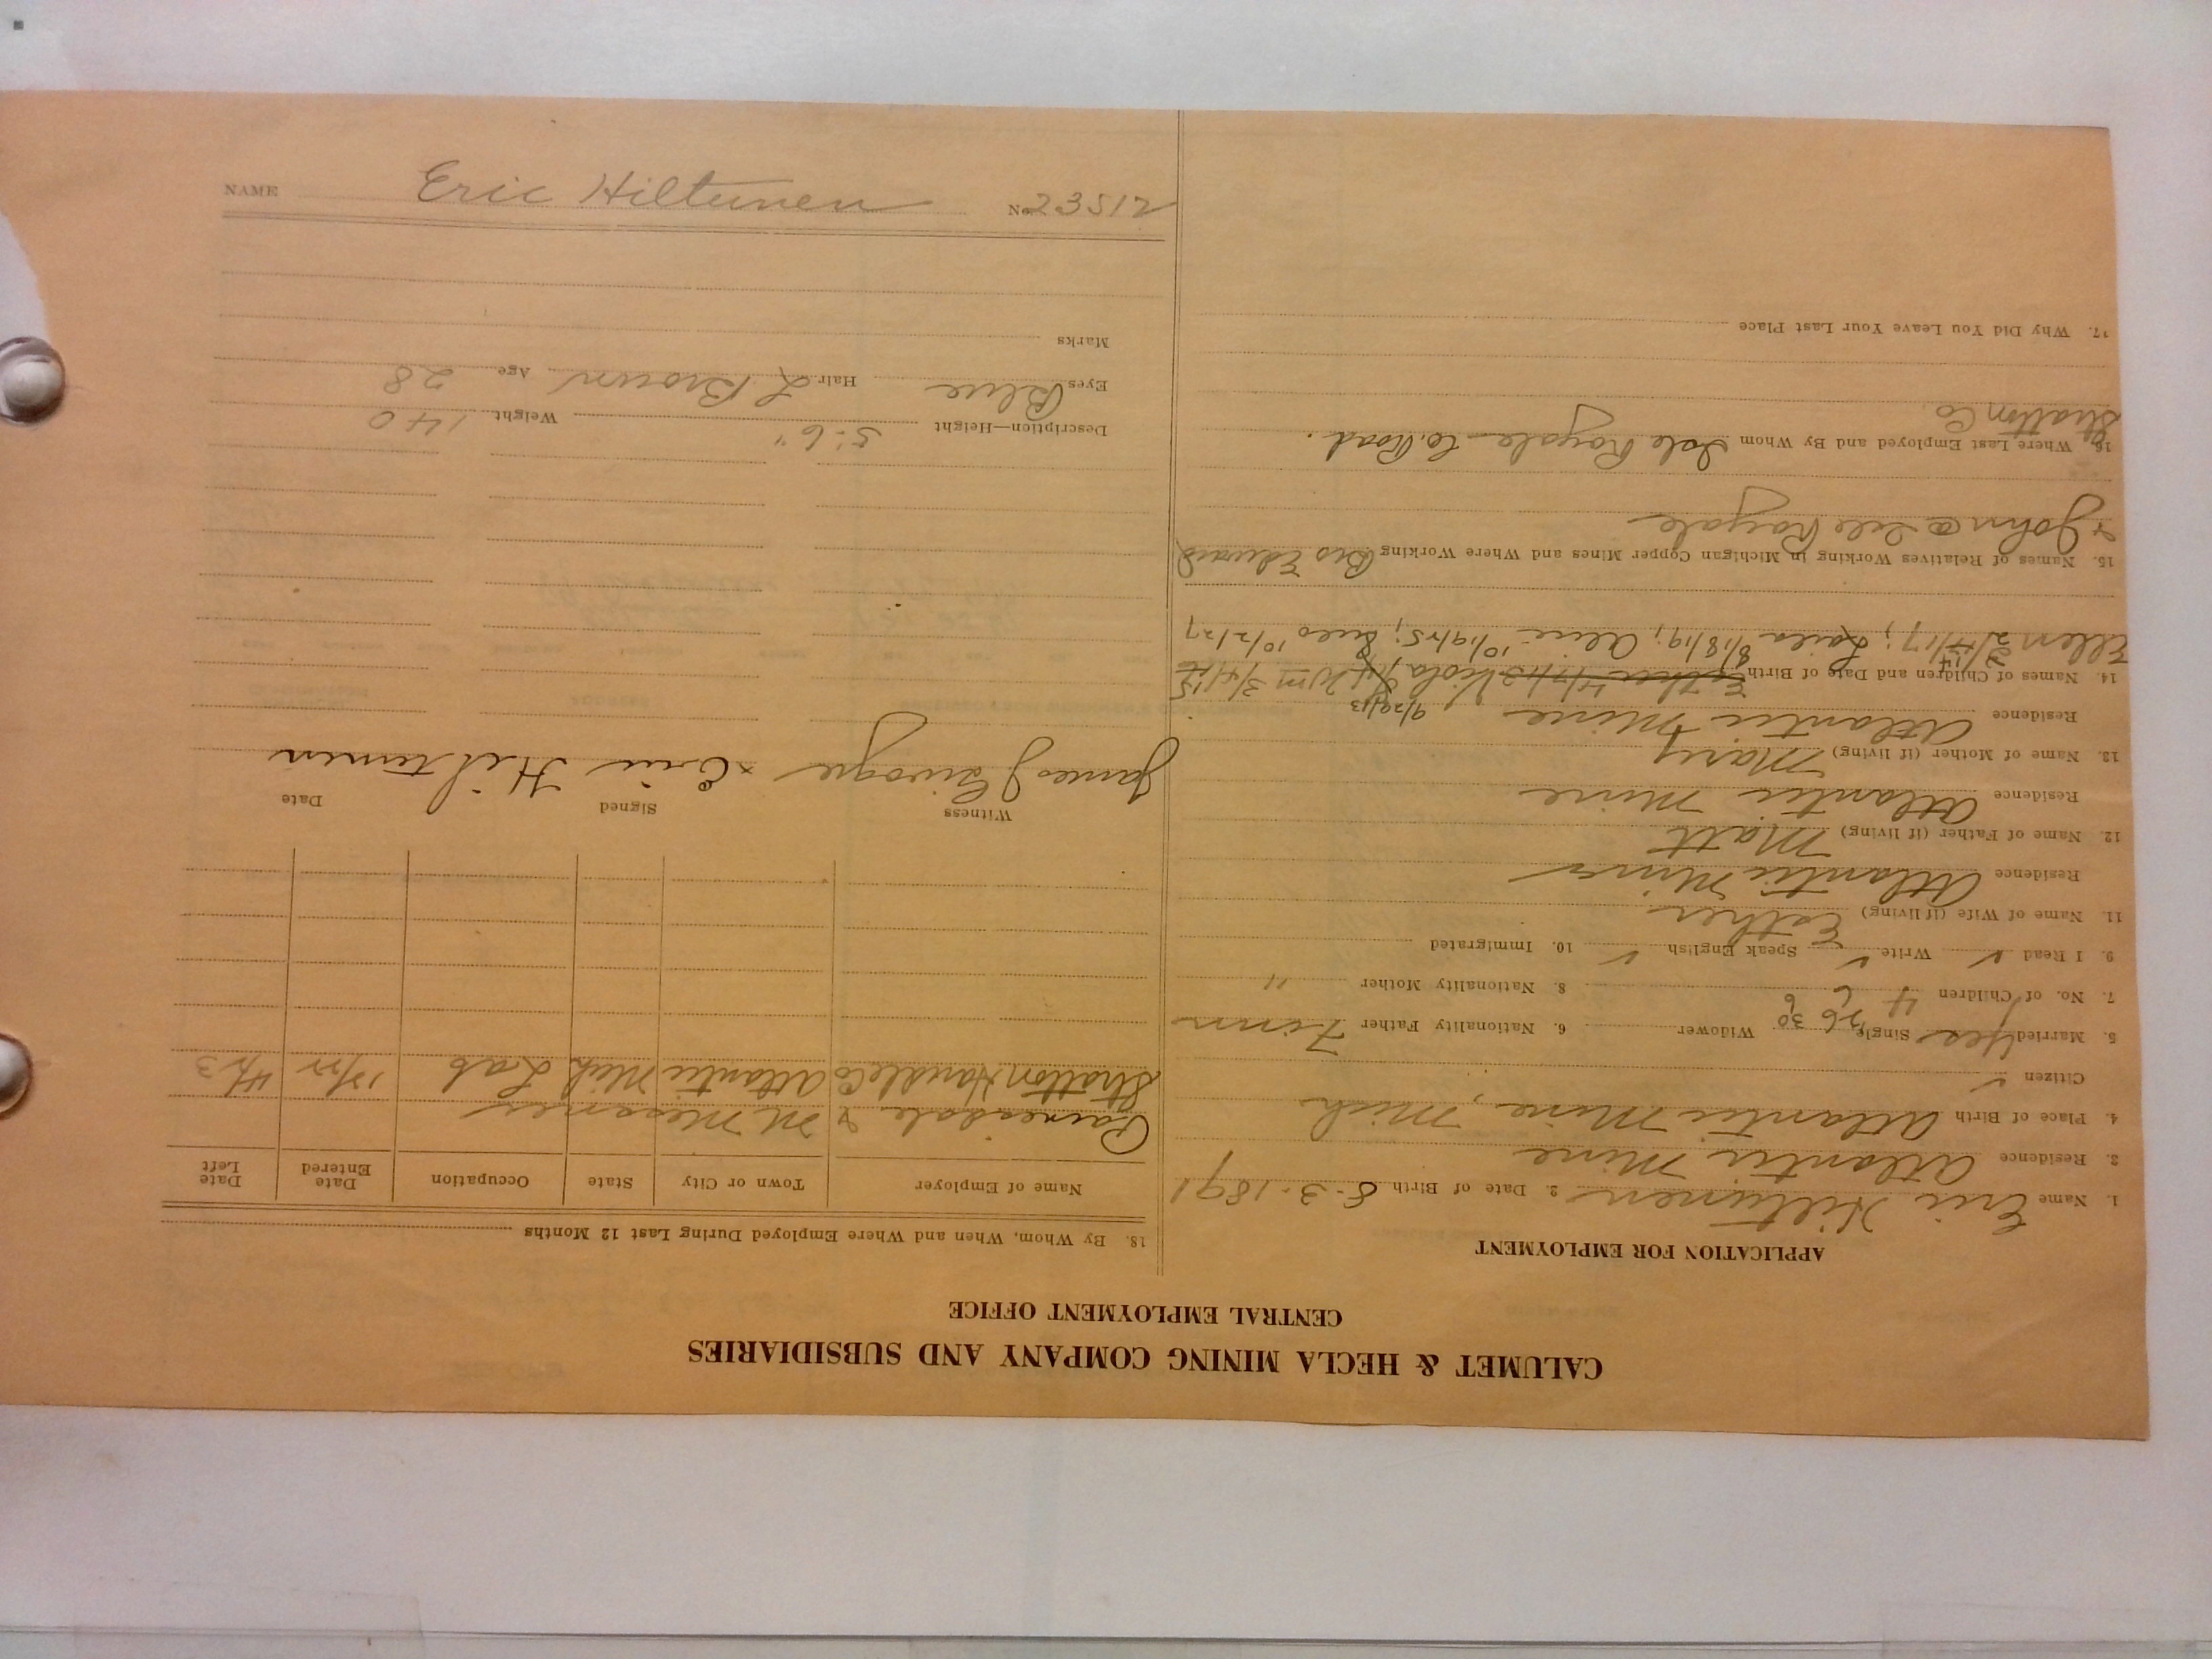 CALUMET & HECLA MINING COMPANY AND SUBSIDIARIES
CENTRAL EMPLOYMENT OFFICE
APPLICATION FOR EMPLOYMENT
1. Name Eric Hiltunen 2. Date of Birth 8-3-1891
3. Residence Atlantic Mine
4. Place of Birth Atlantic Mine, Mich
Citizen ✓
5. Married Yes Single 36 30 Widower 6. Nationality Father Finn
7. No. of Children 4 6 8. Nationality Mother "
9. I Read ✓ Write ✓ Speak English ✓ 10. Immigrated
11. Name of Wife (if living) Esther
Residence Atlantic Mine
12. Name of Father (if living) Matt
Residence Atlantic Mine
13. Name of Mother (if living) Mary
Residence Atlantic Mine 9/29/13
14. Names of Children and Date of Birth Esther Viola Wm 3/4/15
Ellen 2/17/17; Laila 8/18/19; Alice 10/19/25; 10/2/27
15. Names of Relatives Working in Michigan Copper Mines and Where Working Bro Edward
+ John @ Isle Royale
16. Where Last Employed and By Whom Isle Royale - Co. Road.
Stratton Co.
17. Why Did You Leave Your Last Place
18. By Whom, When and Where Employed During Last 12 Months
Name of Employer Town or City State Occupation Date Entered Date Left
Painesdale + M Messner
Stratton Handle Co Atlantic Mich Lab 12/22 4/23
Witness Signed Date
James J x Eric Hiltunen
Description—Height 5'-6" Weight 140
Eyes Blue Hair L Brown Age 28
Marks
NAME Eric Hiltunen No. 23512